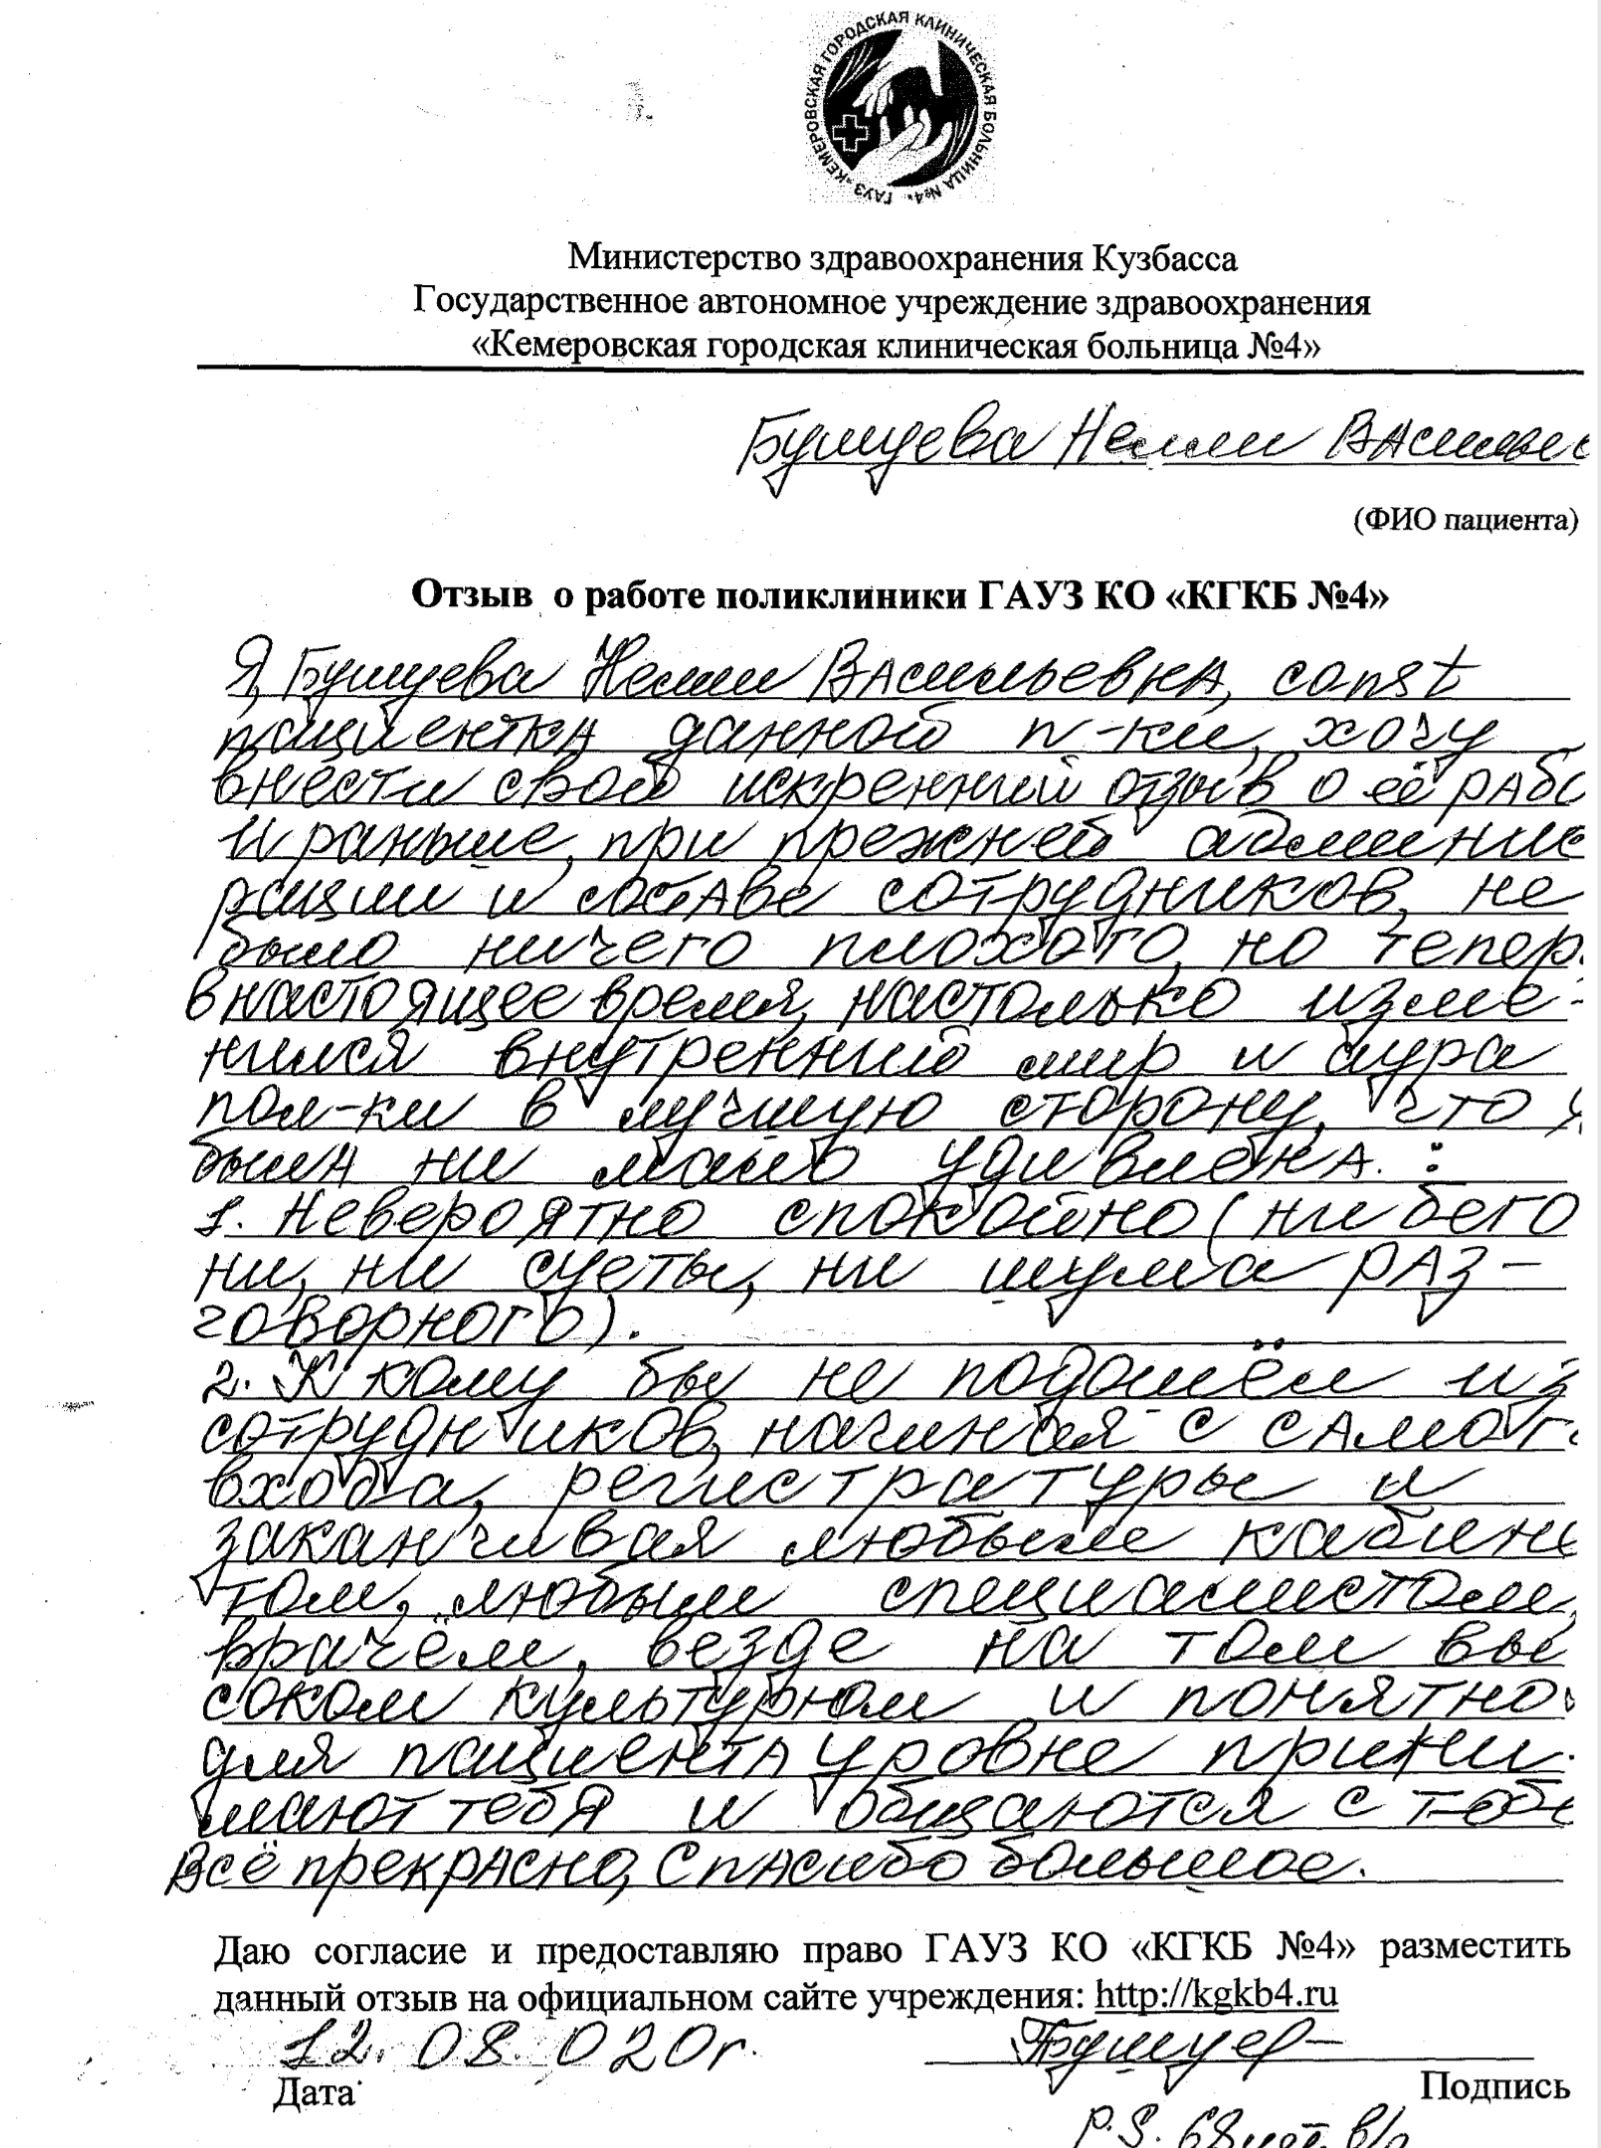 ГАУЗ «КЕМЕРОВСКАЯ ГОРОДСКАЯ КЛИНИЧЕСКАЯ БОЛЬНИЦА №4»
Министерство здравоохранения Кузбасса
Государственное автономное учреждение здравоохранения
«Кемеровская городская клиническая больница №4»
Бушуева Нелли Васильев
(ФИО пациента)
Отзыв о работе поликлиники ГАУЗ КО «КГКБ №4»
Я, Бушуева Нелли Васильевна, const
пациентка данной п-ки, хочу
внести свой искренний отзыв о её рабо
И раньше, при прежней админис
рации и составе сотрудников, не
было ничего плохого, но тепер
в настоящее время, настолько изме-
нился внутренний мир и аура
пол-ки в лучшую сторону, что я
была ни мало удивлена. :
1. Невероятно спокойно (ни бего
ни, ни суеты, ни шума раз-
говорного).
2. К кому бы не подошёл из
сотрудников, начиная с самог
входа, регистратуры и
заканчивая любым кабине
том, любым специалистом,
врачём, везде на том вы
соком культурном и понятно
для пациента уровне прини-
мают тебя и общаются с тоб
Всё прекрасно, Спасибо большое.
Даю согласие и предоставляю право ГАУЗ КО «КГКБ №4» разместить
данный отзыв на официальном сайте учреждения: http://kgkb4.ru
12. 08. 020г.
Дата
Подпись
P.S. 68 лет